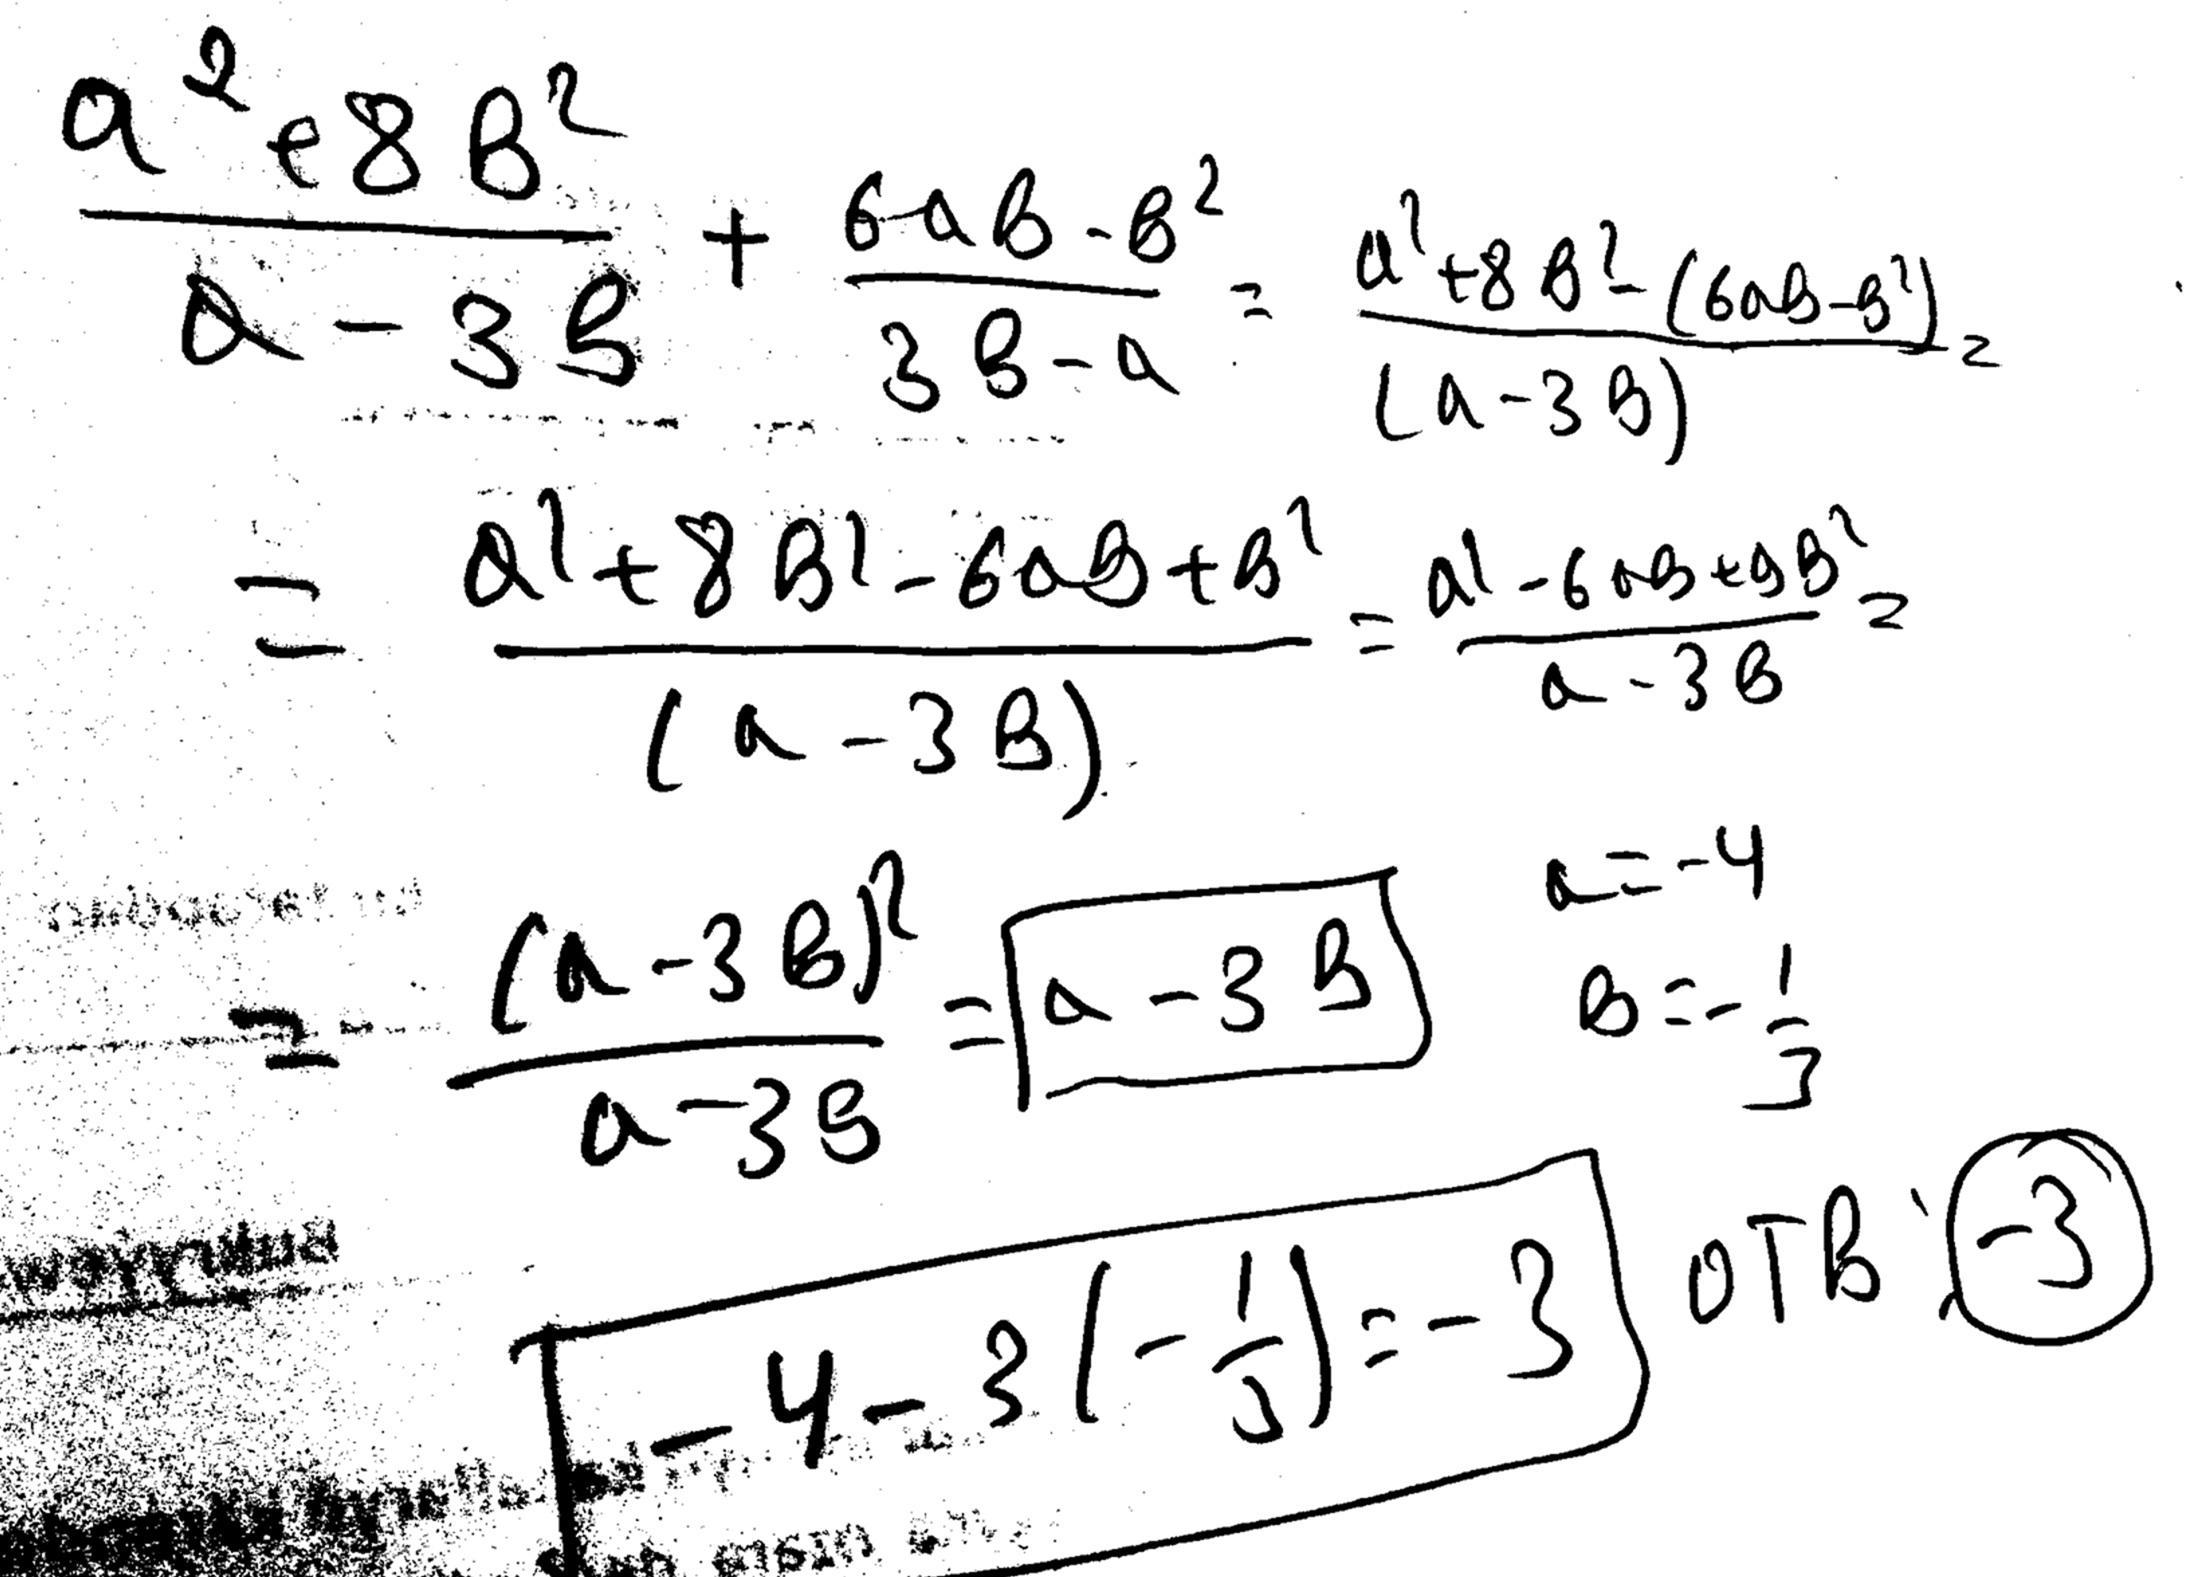 a² + 8B² / a - 3B + 6aB - B² / 3B - a = a² + 8B² - (6aB - B²) / (a - 3B) =
= a² + 8B² - 6aB + B² / (a - 3B) = a² - 6aB + 9B² / a - 3B =
= (a - 3B)² / a - 3B = a - 3B
a = -4
B = - 1/3
-4 - 3(- 1/3) = -3
ОТВ: -3